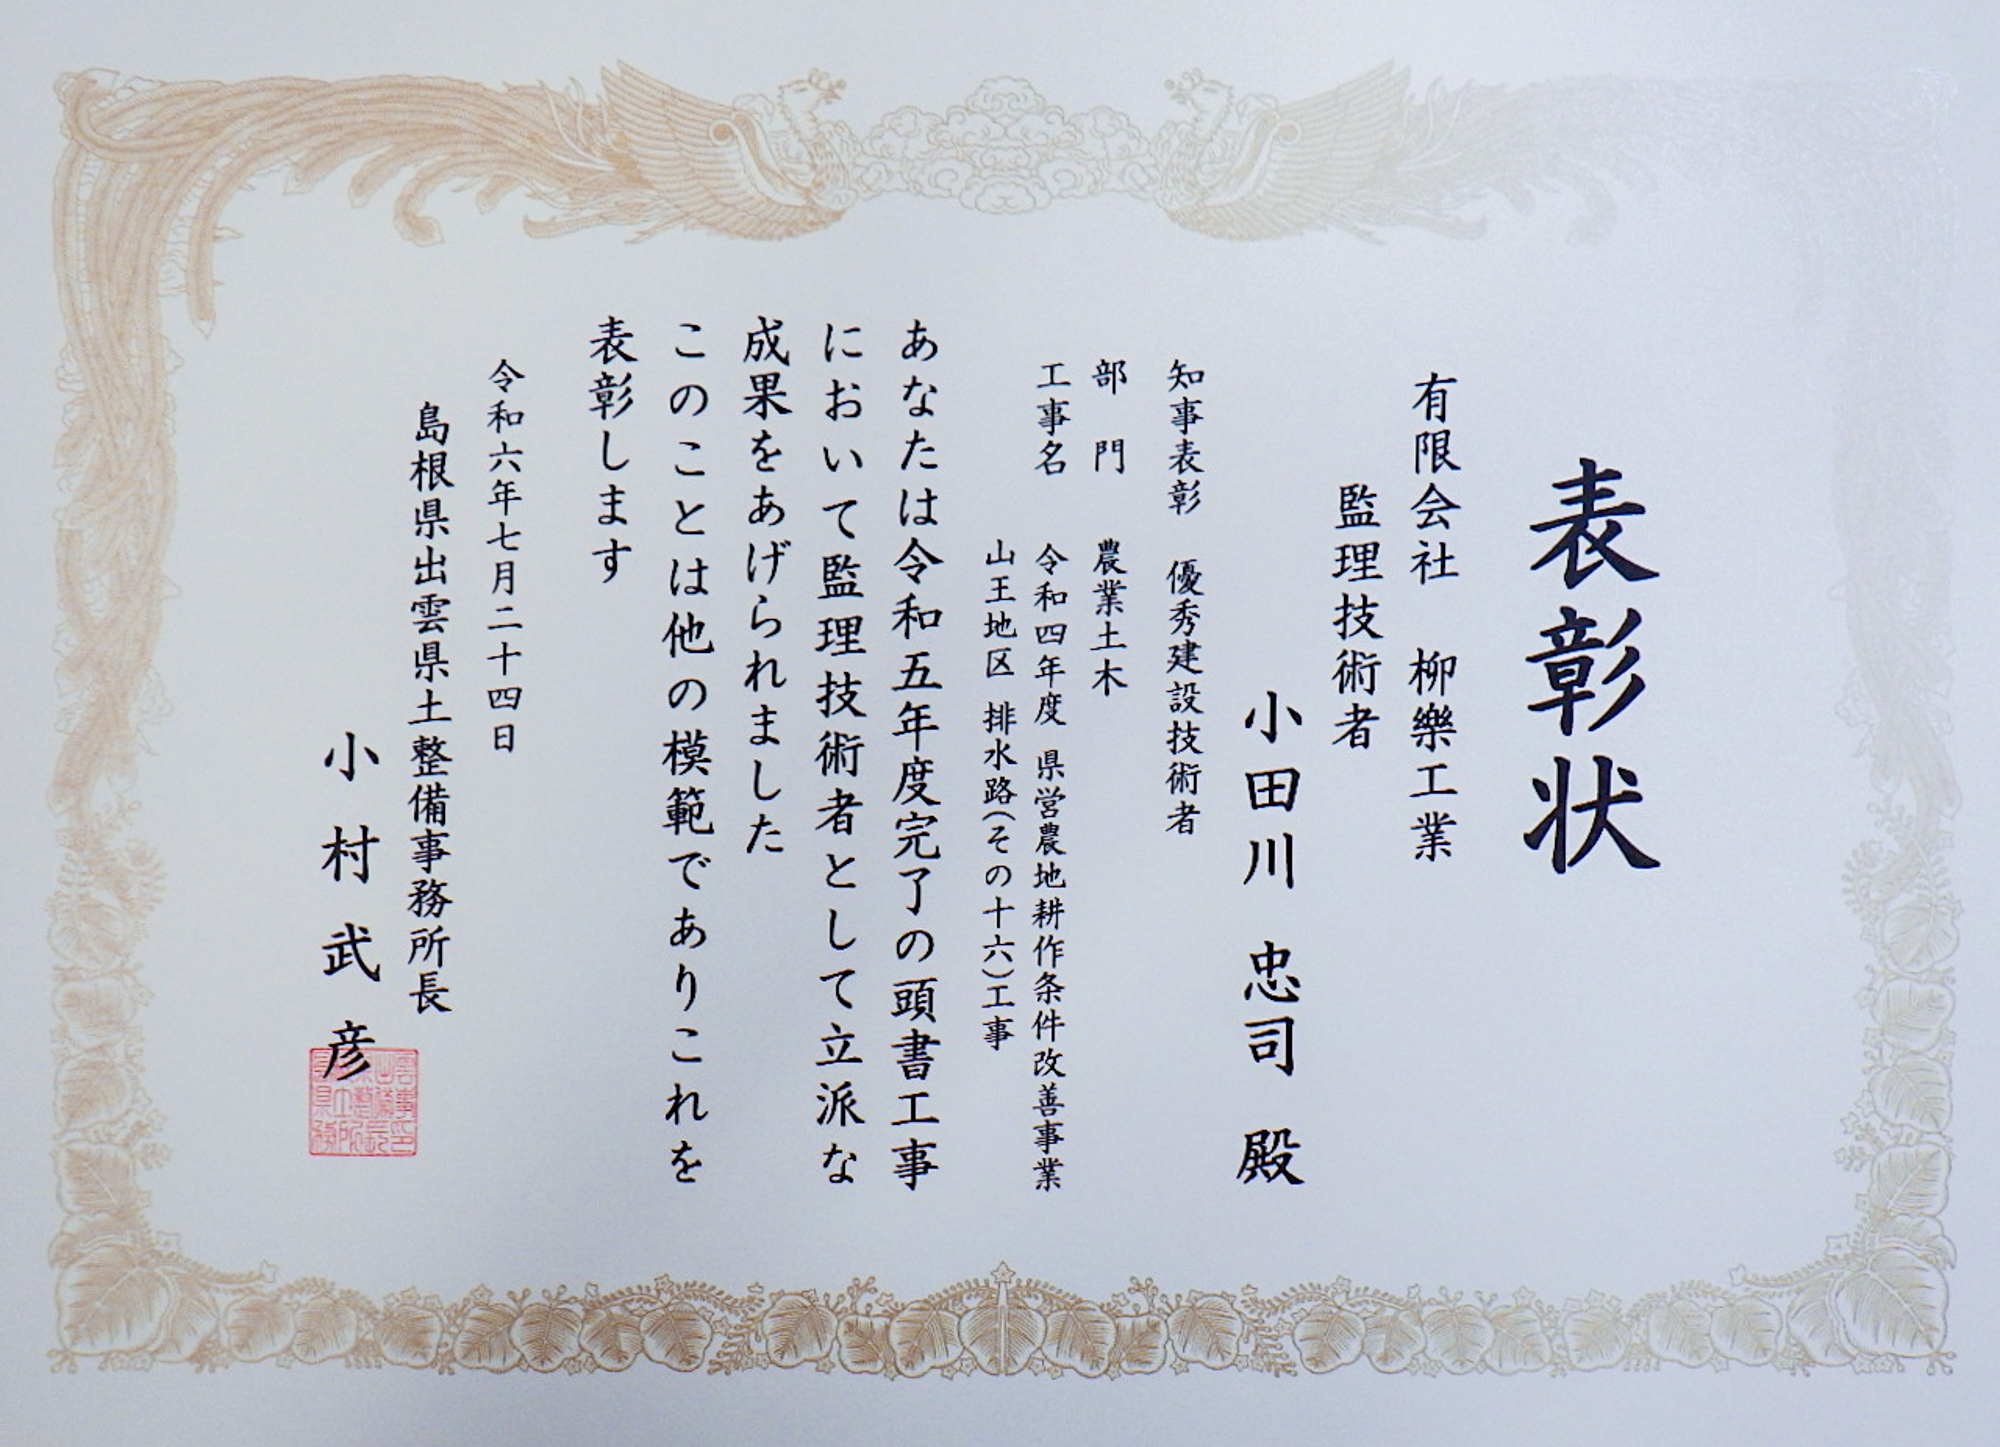 表彰状
有限会社 柳樂工業
監理技術者
小田川 忠司 殿
知事表彰 優秀建設技術者
部 門 農業土木
工事名 令和四年度 県営農地耕作条件改善事業
山王地区 排水路(その十六)工事
あなたは令和五年度完了の頭書工事
において監理技術者として立派な
成果をあげられました
このことは他の模範でありこれを
表彰します
令和六年七月二十四日
島根県出雲県土整備事務所長
小村武彦